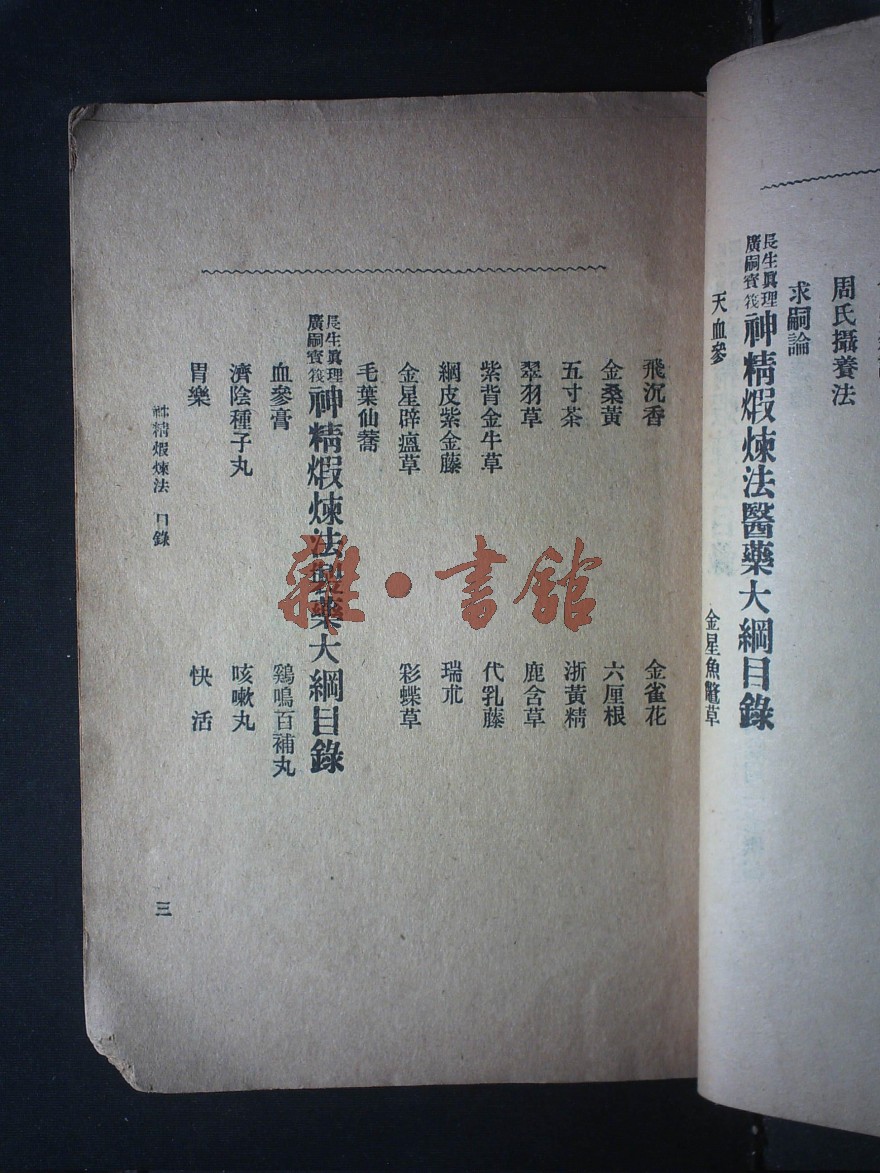 周氏攝養法
求嗣論
長生眞理
廣嗣寶筏
神精煅煉法醫藥大綱目錄
天血參
金星魚鼈草
飛沉香
金雀花
金桑黃
六厘根
五寸茶
浙黃精
翠羽草
鹿含草
紫背金牛草
代乳藤
網皮紫金藤
瑞朮
金星辟瘟草
彩蝶草
毛葉仙蕎
長生眞理
廣嗣寶筏
神精煅煉法製藥大綱目錄
血參膏
鷄鳴百補丸
濟陰種子丸
咳嗽丸
胃樂
快活
神精煅煉法 目錄
三
雜·書館